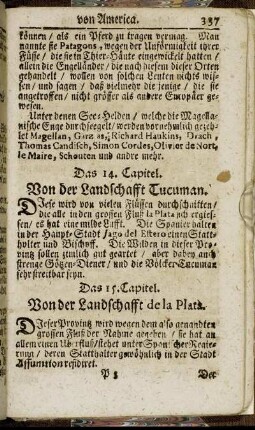 von America. 337
können / als ein Pferd zu tragen vermag. Man
nannte sie Patagons, wegen der Unförmigkeit ihrer
Füsse / die sie in Thier-Häute eingewickelt hatten /
allein die Engelländer / die nach diesem dieser Orten
gehandelt / wollen von solchen Leuten nichts wis-
sen / und sagen / daß vielmehr die jenige / die sie
angetroffen / nicht grösser als andere Europäer ge-
wesen.
Unter denen See-Helden / welche die Magella-
nische Enge durchseegelt / werden vornehmlich gezeh-
let Magellan, Richard Haukins, Drach,
Thomas Candisch, Simon Cordes, Olivier de Nort,
le Maire, Schouten und andre mehr.
Das 14. Capitel.
Von der Landschafft Tucuman.
Diese wird von vielen Flüssen durchschnitten /
die alle in den grossen Fluß la Plata sich ergies-
sen / es hat eine milde Lufft. Die Spanier halten
in der Haupt-Stadt Jago del Estero einen Statt-
halter und Bischoff. Die Wilden in dieser Pro-
vintz sollen zimlich gut geartet / aber dabey auch
strenge Götzen-Diener / und die Völcker Tucuman
sehr streitbar seyn.
Das 15. Capitel.
Von der Landschafft de la Plata.
Dieser Provintz wird wegen dem also genandten
grossen Fluß der Nahme gegeben / sie hat an
allem einen Uberfluß / stehet unter Spanischer Regie-
rung / deren Statthalter gewöhnlich in der Stadt
Assumtion residiret.
P 3 Der